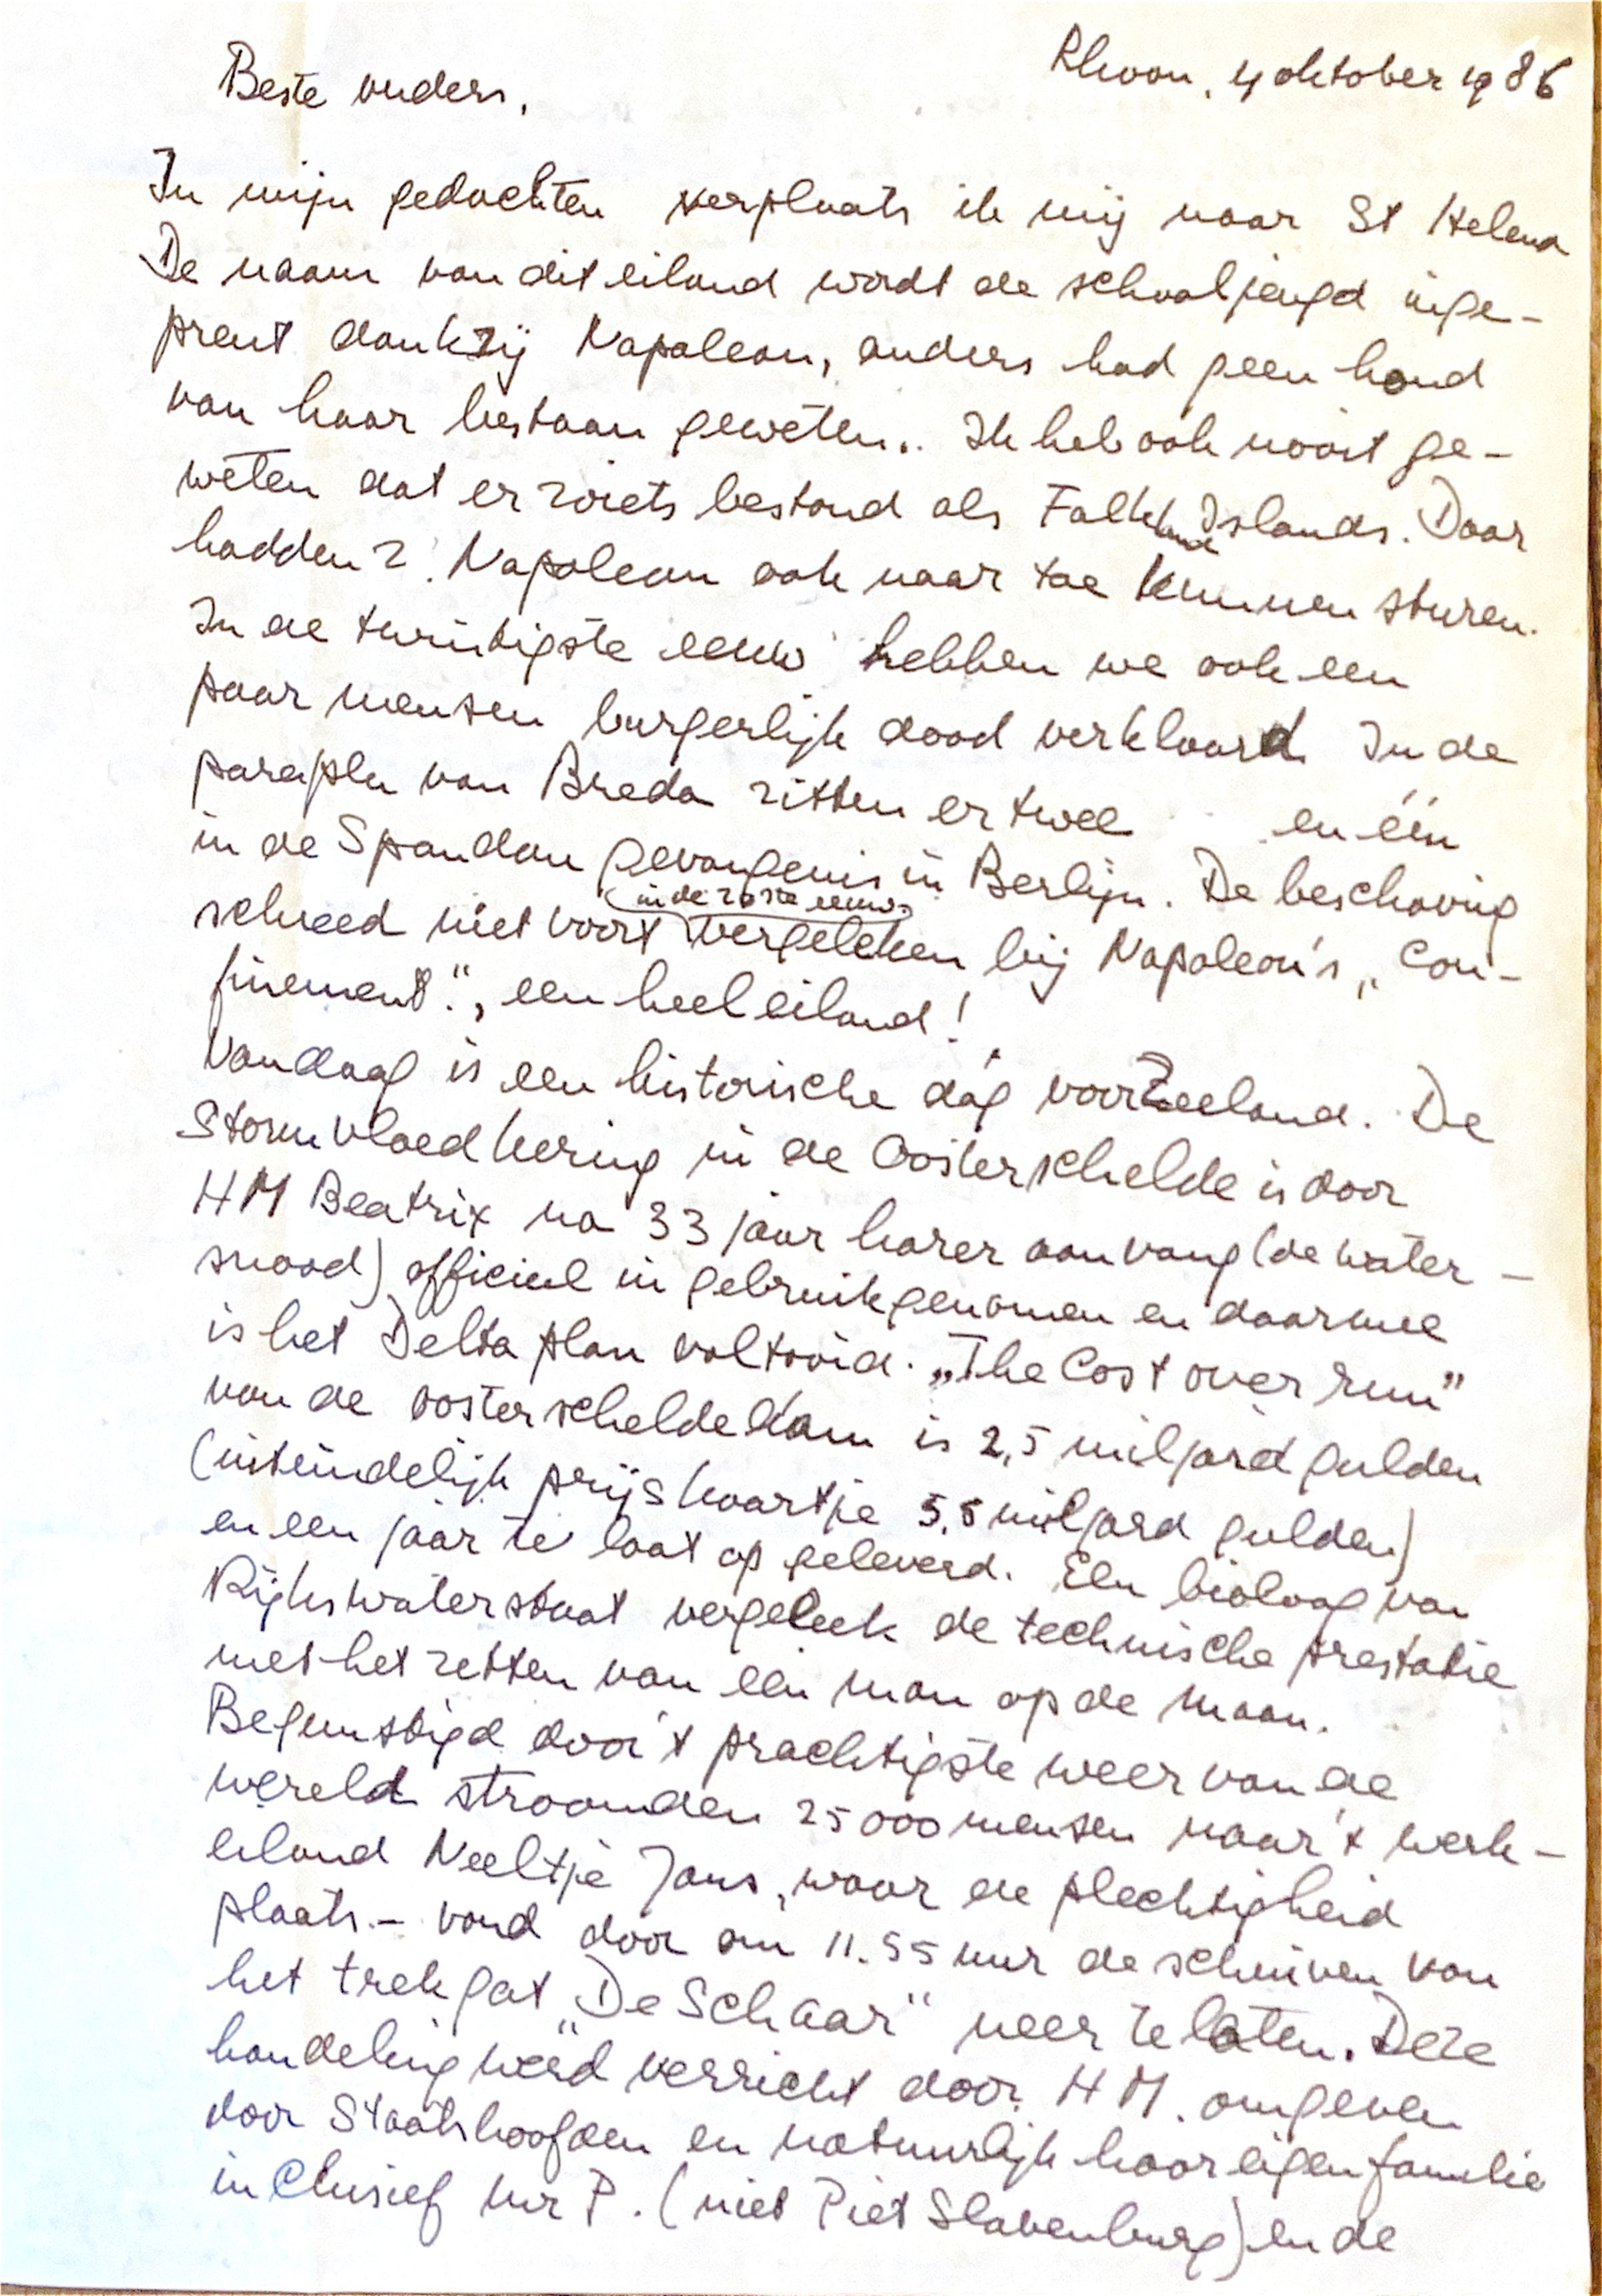 Rhoon, 4 oktober 1986
Beste ouders,
In mijn gedachten verplaats ik mij naar St Helena
De naam van dit eiland wordt de schooljeugd inge-
prent dankzij Napoleon, anders had geen hond
van haar bestaan geweten.. Ik heb ook nooit ge-
weten dat er zoiets bestond als Falkland Islands. Daar
hadden z. Napoleon ook naar toe kunnen sturen.
In de twintigste eeuw hebben we ook een
paar mensen burgerlijk dood verklaard In de
paraplu van Breda zitten er twee en één
in de Spandau gevangenis in Berlijn. De beschaving
schreed niet voort (in de 20ste eeuw) vergeleken bij Napoleon's „Con-
finement", een heel eiland!
Vandaag is een historische dag voor Zeeland. De
Stormvloedkering in de Oosterschelde is door
HM Beatrix na 33 jaar harer aanvang (de water-
snood) officieel in gebruik genomen en daarmee
is het Delta plan voltooid. „The Cost over run"
van de oosterscheldedam is 2,5 miljard gulden
(uiteindelijk prijskaartje 5,5 miljard gulden)
en een jaar te laat op geleverd. Een bioloog van
Rijkswaterstaat vergeleek de technische prestatie
met het zetten van een man op de maan.
Begunstigd door 't prachtigste weer van de
wereld stroomden 25000 mensen naar 't werk-
eiland Neeltje Jans, waar de plechtigheid
plaats - vond door om 11.55 uur de schuiven van
het trek gat „De Schaar" neer te laten. Deze
handeling werd verricht door HM. omgeven
door Staatshoofden en natuurlijk haar eigen familie
inclusief Mr P. (niet Piet Slavenburg) en de